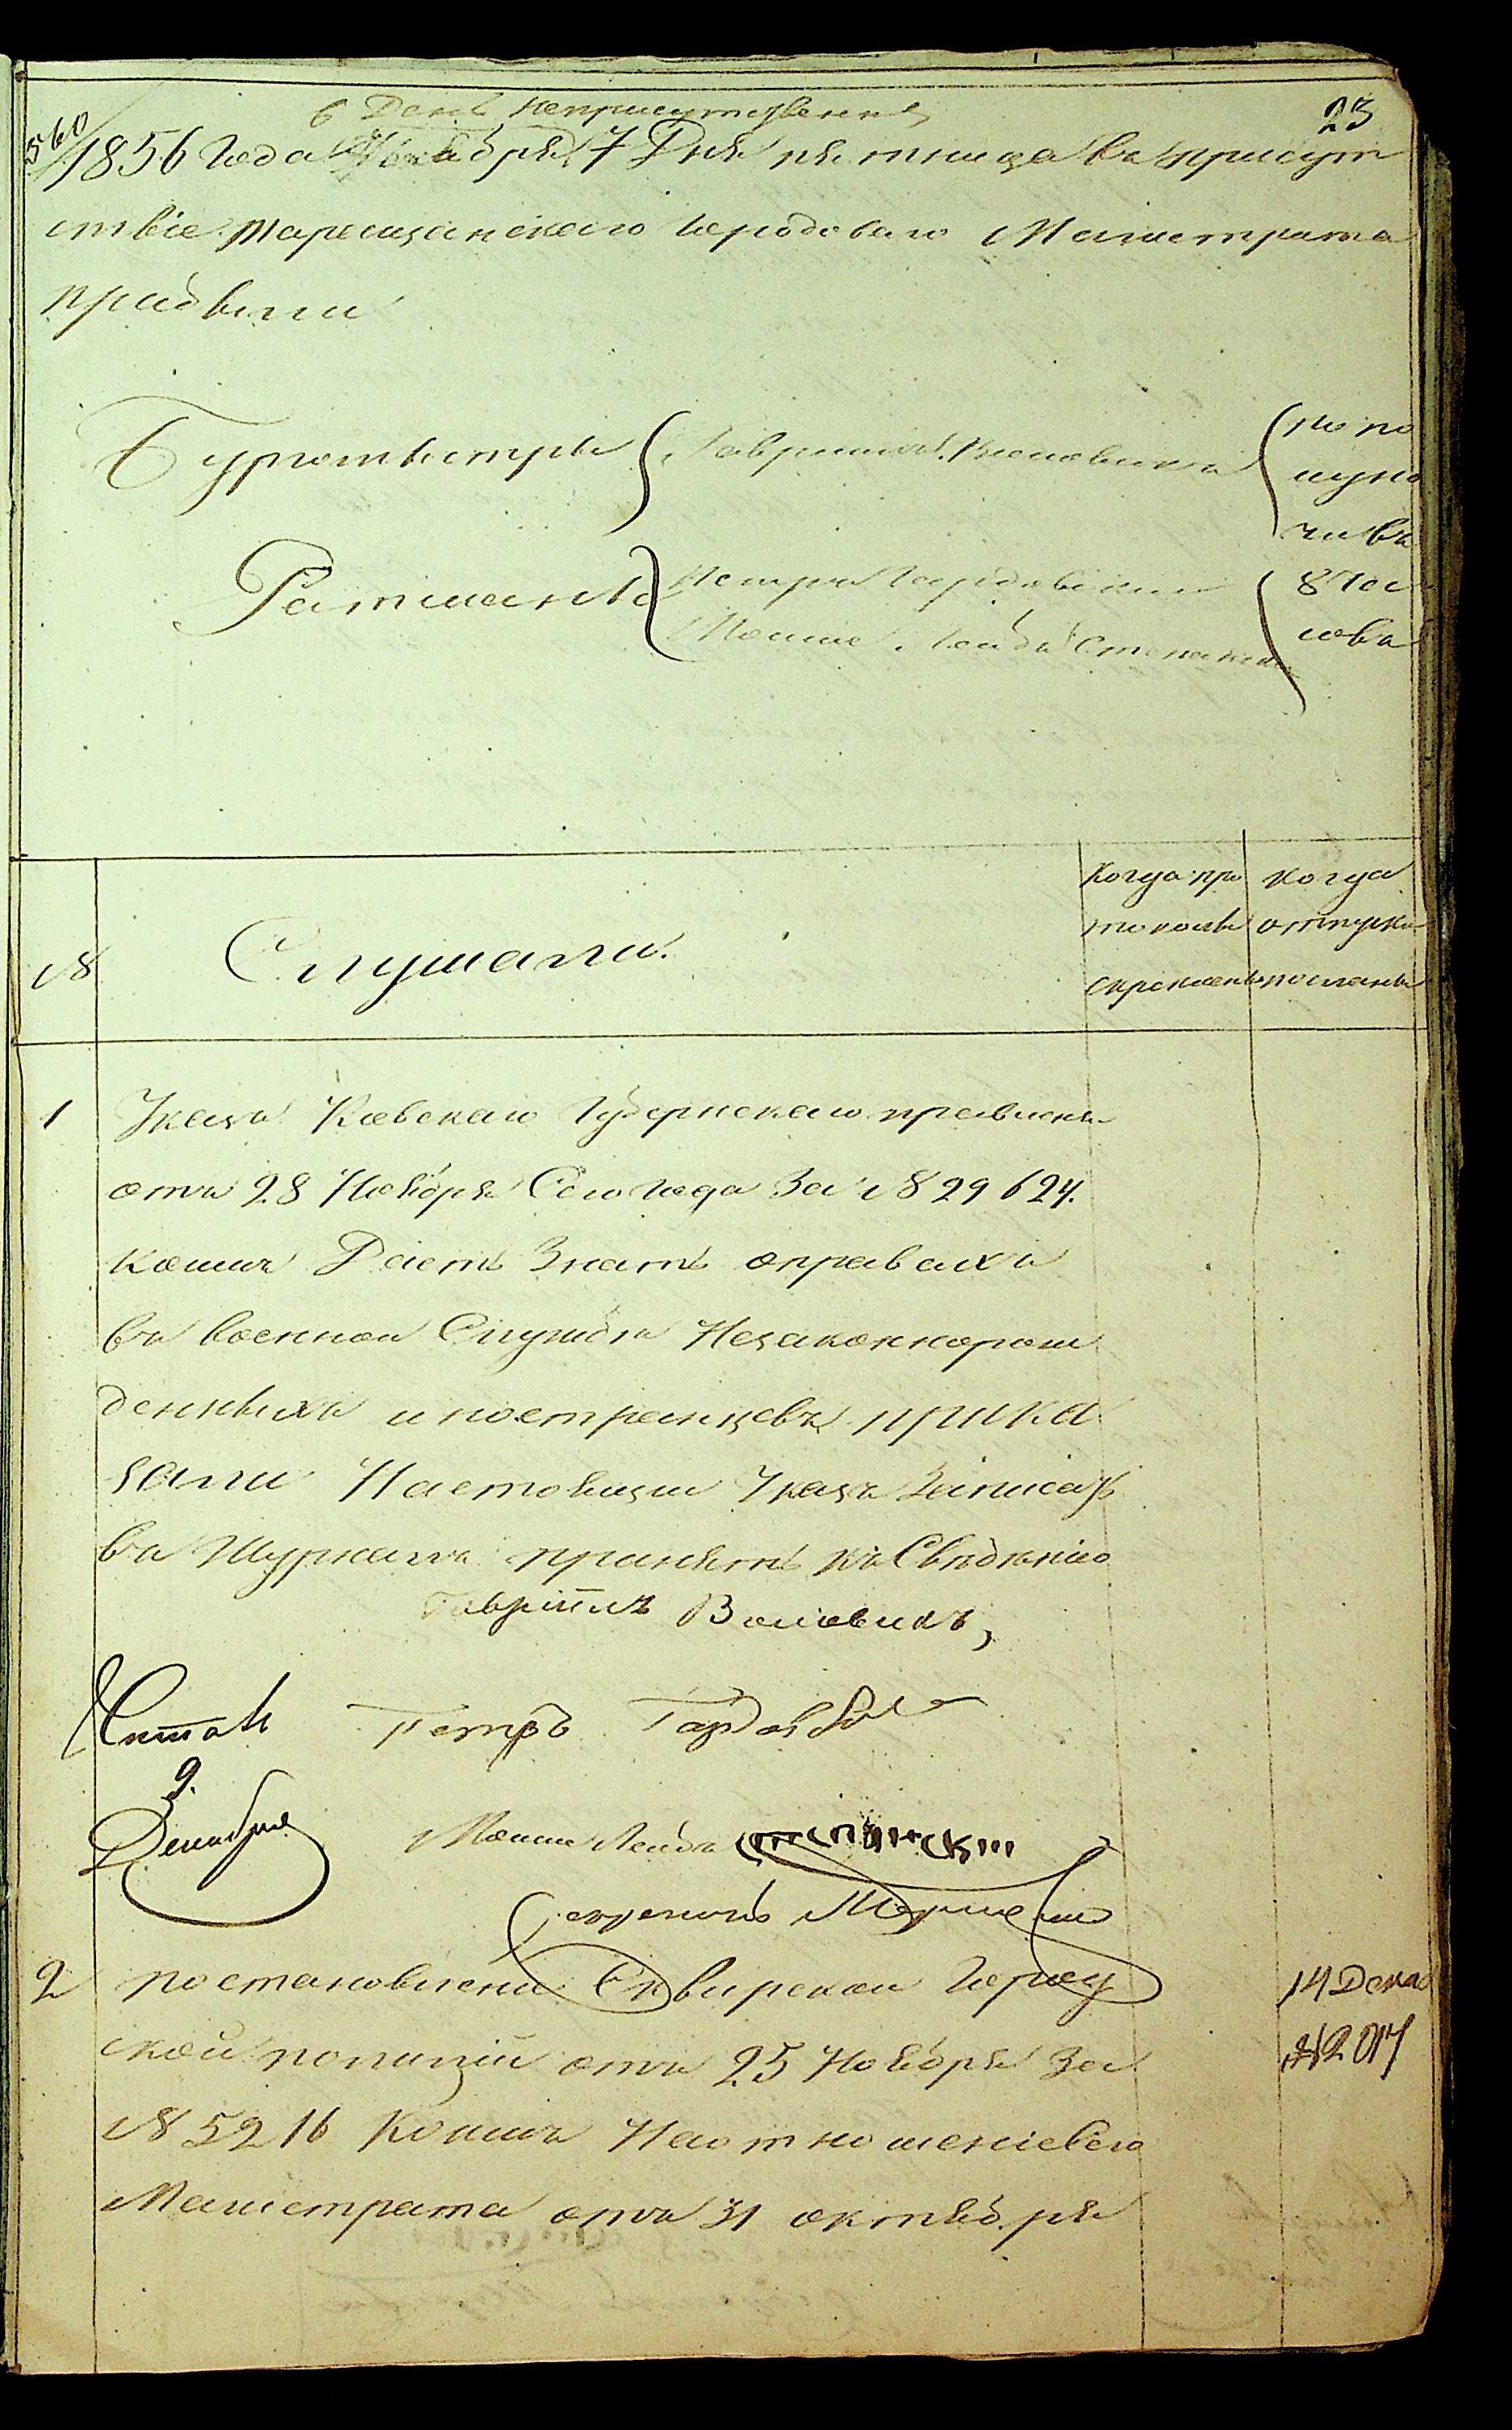 6 День неприсутственны
23
560
1856 Года Декабря 7 Дня пятница в присут
ствіе Таращанскаго городоваго Магистрата
прибыли
Бургомистръ Гавриилъ Воловикъ по по
луно
чи въ
Ратманы Петръ Гардовскій 8 Час
Мошко Лейба Степанскій совъ
№ Слушали. Когда про Когда
токолъ отпуски
скрепленъ посланы
1 Указъ Кіевскаго Губернскаго правленія
отъ 28 Ноября Сего года За № 29624.
коимъ Даетъ Знать о правахъ
въ военной Службѣ Незаконнорож
денныхъ иностранцевъ прика
зали Настоящій Указъ Записать
въ Журналъ принять къ Свѣдѣнію
Гавріилъ Воловикъ,
Читалъ Петръ Гардовскій
9.
Декабря Мошко Лейба Степанскій
Секретарь
2 постановленіе Сквирской Город
ской полиціи отъ 25 Ноября За
№ 5216 Коимъ На отношеніе сего
Магистрата отъ 31 октября
14 Декаб
№ 2017